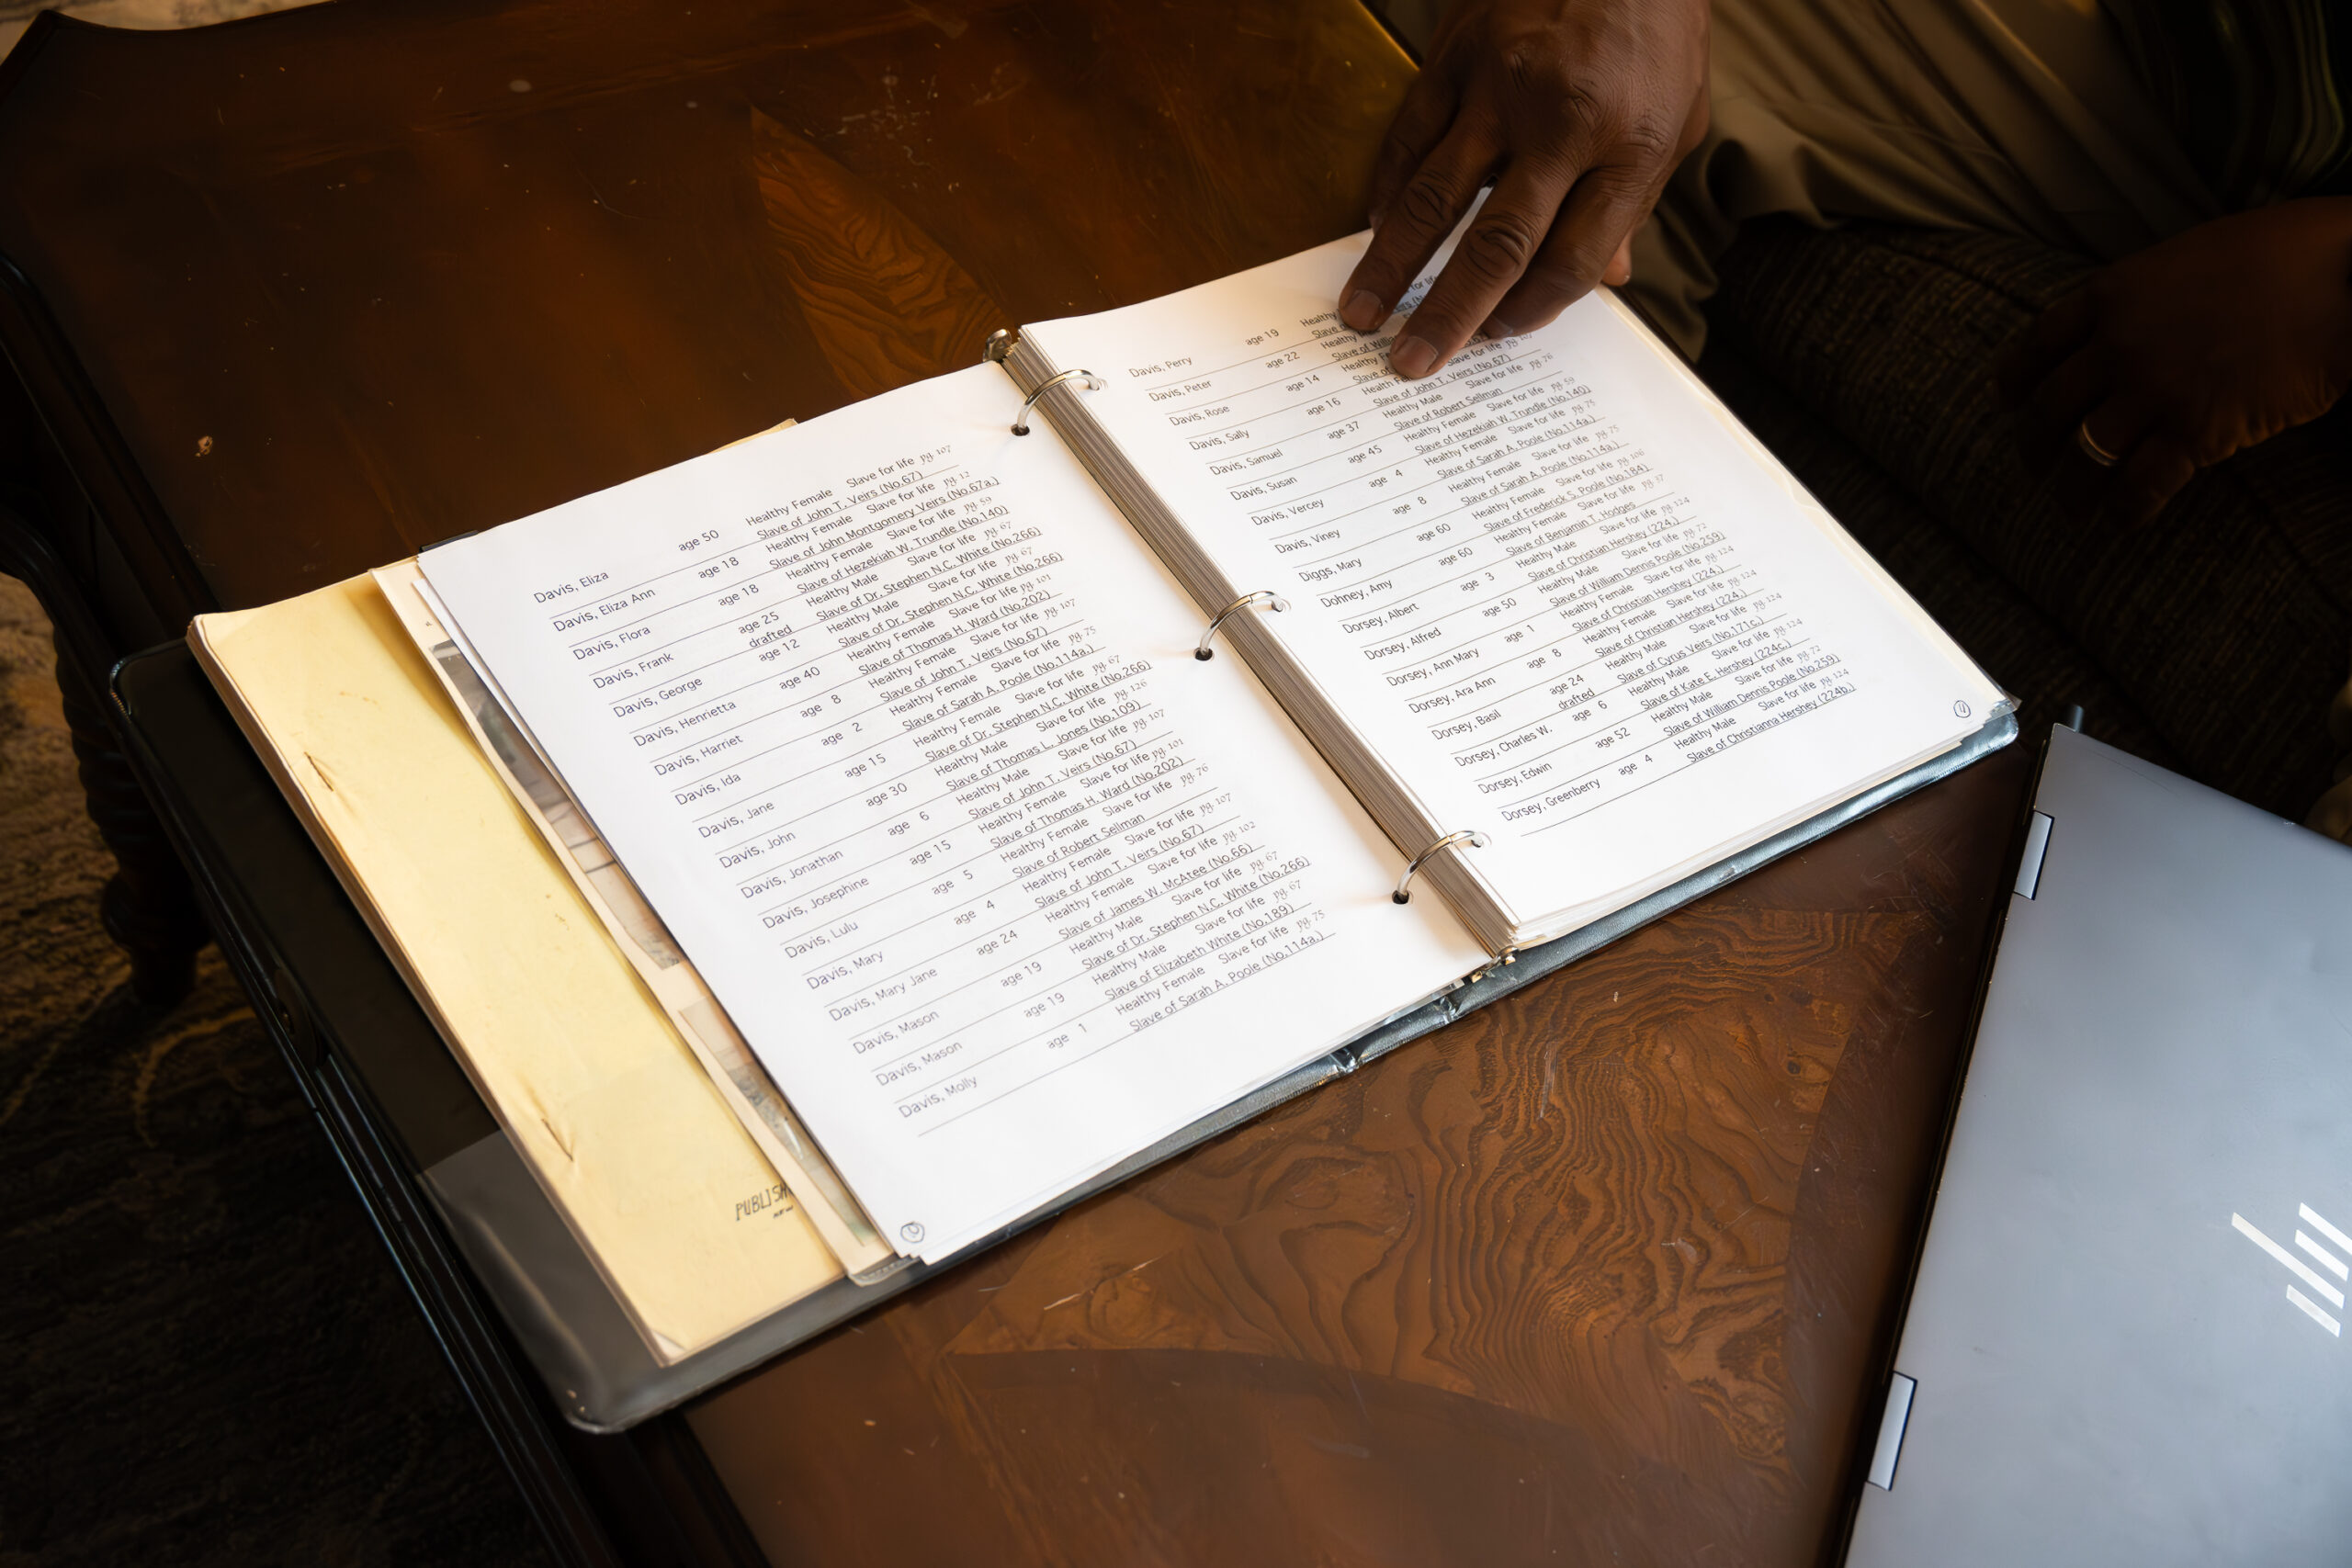 Davis, Eliza age 50 Healthy Female Slave for life pg. 107
Slave of John T. Veirs (No.67)
Davis, Eliza Ann age 18 Healthy Female Slave for life pg. 12
Slave of John Montgomery Veirs (No.67a.)
Davis, Flora age 18 Healthy Female Slave for life pg. 59
Slave of Hezekiah W. Trundle (No.140)
Davis, Frank age 25 Healthy Male Slave for life pg. 67
drafted Slave of Dr. Stephen N.C. White (No.266)
Davis, George age 12 Healthy Male Slave for life pg. 67
Slave of Dr. Stephen N.C. White (No.266)
Davis, Henrietta age 40 Healthy Female Slave for life pg. 101
Slave of Thomas H. Ward (No.202)
Davis, Harriet age 8 Healthy Female Slave for life pg. 107
Slave of John T. Veirs (No.67)
Davis, Ida age 2 Healthy Female Slave for life pg. 75
Slave of Sarah A. Poole (No.114a.)
Davis, Jane age 15 Healthy Female Slave for life pg. 67
Slave of Dr. Stephen N.C. White (No.266)
Davis, John age 30 Healthy Male Slave for life pg. 126
Slave of Thomas L. Jones (No.109)
Davis, Jonathan age 6 Healthy Male Slave for life pg. 107
Slave of John T. Veirs (No.67)
Davis, Josephine age 15 Healthy Female Slave for life pg. 101
Slave of Thomas H. Ward (No.202)
Davis, Lulu age 5 Healthy Female Slave for life pg. 76
Slave of Robert Sellman
Davis, Mary age 4 Healthy Female Slave for life pg. 107
Slave of John T. Veirs (No.67)
Davis, Mary Jane age 24 Healthy Female Slave for life pg. 102
Slave of James W. McAtee (No.66)
Davis, Mason age 19 Healthy Male Slave for life pg. 67
Slave of Dr. Stephen N.C. White (No.266)
Davis, Mason age 19 Healthy Male Slave for life pg. 67
Slave of Elizabeth White (No.189)
Davis, Molly age 1 Healthy Female Slave for life pg. 75
Slave of Sarah A. Poole (No.114a.)
10
Davis, Perry age 19 Healthy for life
Slave of
Davis, Peter age 22 Healthy
Slave of
Davis, Rose age 14 Healthy
Slave of
Davis, Sally age 16 Health Slave for life
Slave of John T. Veirs (No.67)
Davis, Samuel age 37 Healthy Male Slave for life pg. 76
Slave of Robert Sellman
Davis, Susan age 45 Healthy Female Slave for life pg. 59
Slave of Hezekiah W. Trundle (No.140)
Davis, Vercey age 4 Healthy Female Slave for life pg. 75
Slave of Sarah A. Poole (No.114a.)
Davis, Viney age 8 Healthy Female Slave for life pg. 75
Slave of Sarah A. Poole (No.114a.)
Diggs, Mary age 60 Healthy Female Slave for life pg. 106
Slave of Frederick S. Poole (No.184)
Dohney, Amy age 60 Healthy Female Slave for life pg. 37
Slave of Benjamin T. Hodges
Dorsey, Albert age 3 Healthy Male Slave for life pg. 124
Slave of Christian Hershey (224.)
Dorsey, Alfred age 50 Healthy Male Slave for life pg. 72
Slave of William Dennis Poole (No.259)
Dorsey, Ann Mary age 1 Healthy Female Slave for life pg. 124
Slave of Christian Hershey (224.)
Dorsey, Ara Ann age 8 Healthy Female Slave for life pg. 124
Slave of Christian Hershey (224.)
Dorsey, Basil age 24 Healthy Male Slave for life pg. 124
drafted Slave of Cyrus Veirs (No.171c.)
Dorsey, Charles W. age 6 Healthy Male Slave for life pg. 124
Slave of Kate E. Hershey (224c.)
Dorsey, Edwin age 52 Healthy Male Slave for life pg. 72
Slave of William Dennis Poole (No.259)
Dorsey, Greenberry age 4 Healthy Male Slave for life pg. 124
Slave of Christianna Hershey (224b.)
11
PUBLISH
hp